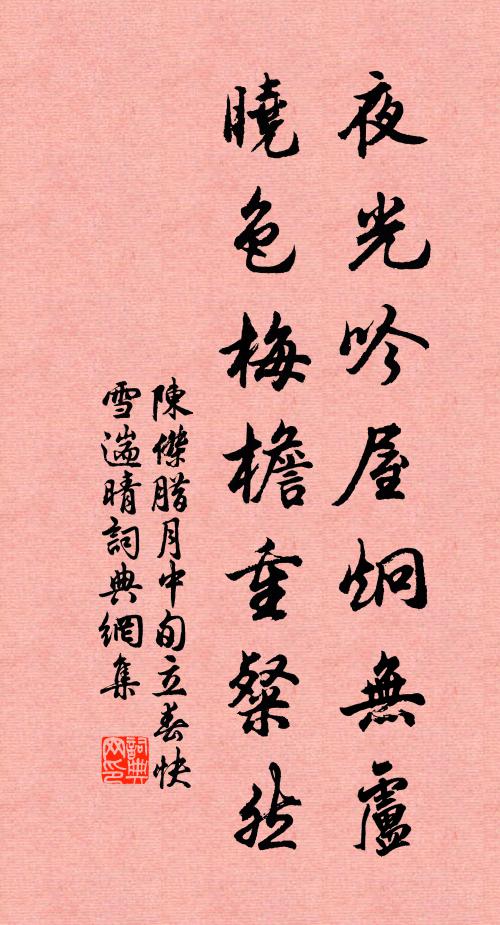 夜光吟屋炯無盧
曉色梅檐重粲然
陳傑腊月中旬立春快
雪遄晴詞典網集
詞典网印